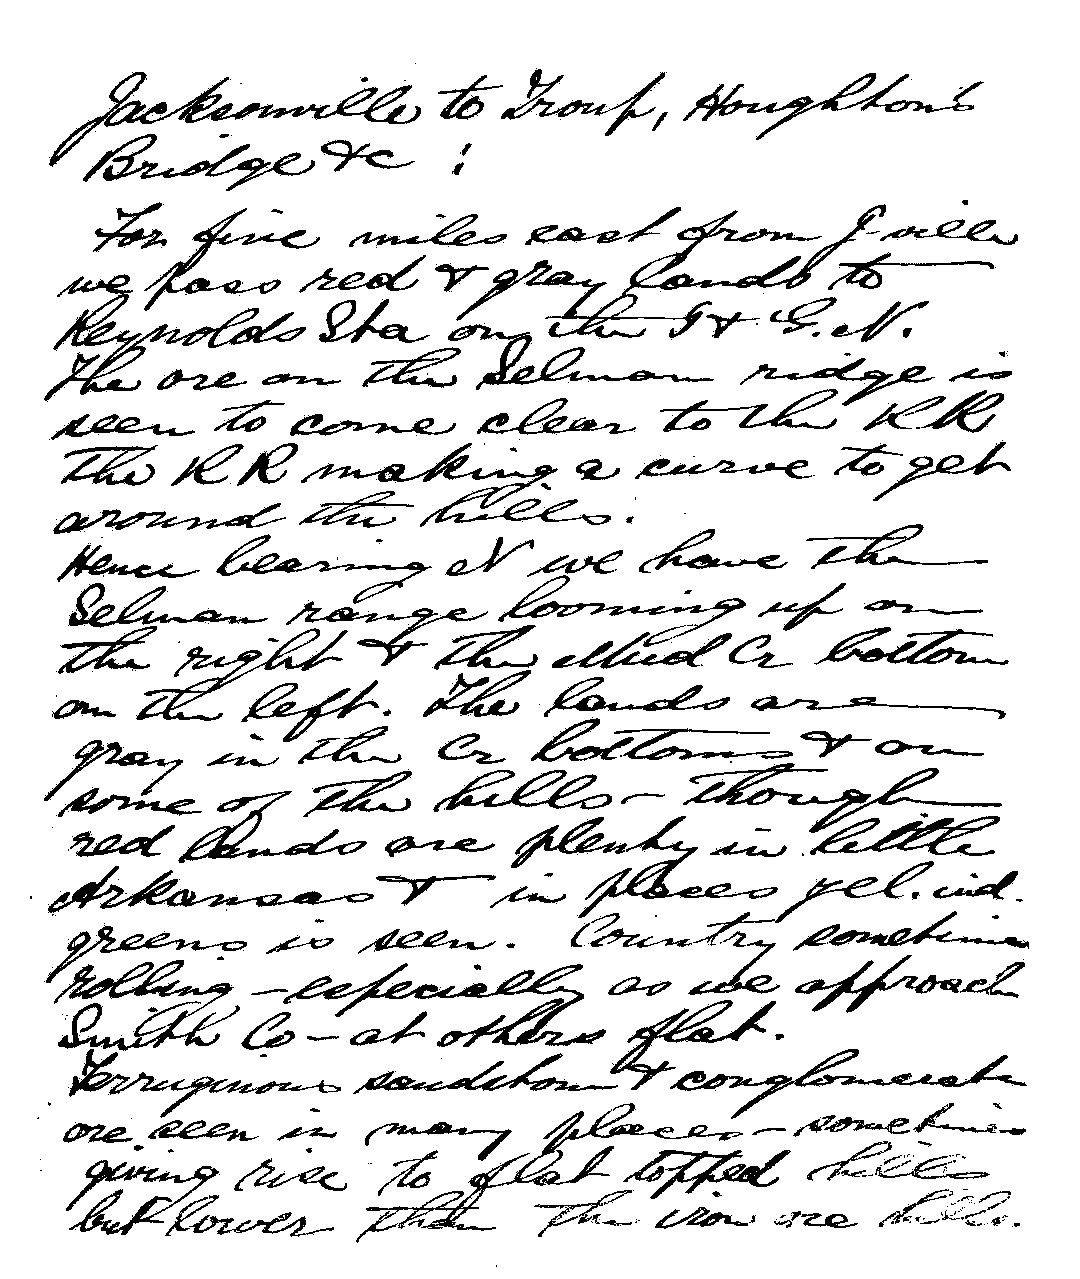 Jacksonville to Troup, Houghton's
Bridge &c :
For five miles east from J-ville
we pass red & gray lands to
Reynolds Sta on the I & G. N.
The ore on the Selman ridge is
seen to come clear to the RR
the RR making a curve to get
around the hills.
Hence bearing N we have the
Selman range looming up on
the right & the Mud Cr bottom
on the left. The lands are
gray in the Cr bottoms & on
some of the hills - though
red lands are plenty in little
Arkansas & in places yel. ind.
greens is seen. Country sometimes
rolling - especially as we approach
Smith Co - at others flat.
Ferruginous sandstone & conglomerate
are seen in many places - sometimes
giving rise to flat topped hills
but lower than the iron ore hills.